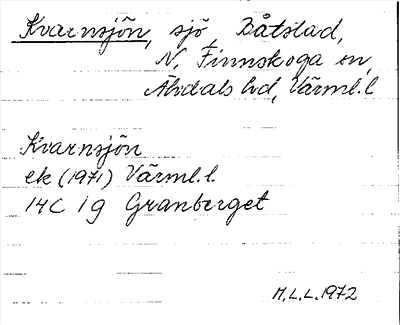 Kvarnsjön, sjö, Båtstad,
N. Finnskoga sn,
Älvdals hd, Värml. l.
Kvarnsjön
ek (1971) Värml. l.
14C 1g Granberget
M.L.L. 1972